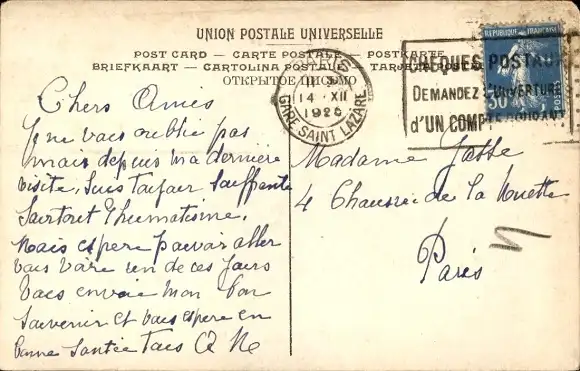 UNION POSTALE UNIVERSELLE
POST CARD — CARTE POSTALE — POSTKARTE
BRIEFKAART — CARTOLINA POSTALE — TARJETA POSTAL
ОТКРЫТОЕ ПИСЬМО
PARIS
14 · XII
1926
GARE SAINT LAZARE
REPUBLIQUE FRANÇAISE
POSTES
30
CHEQUES POSTAUX
DEMANDEZ L'OUVERTURE
d'UN COMPTE COURANT
Chers Amis
Je ne vous oublie pas
mais depuis ma dernière
visite, suis toujour Souffrante
Surtout Rhumatisme.
Mais espère pouvoir aller
vous voire un de ces Jours
Vous envoie mon bon
Souvenir et vous espere en
bonne Santée Tous
Madame
4 Chaussée de la Muette
Paris